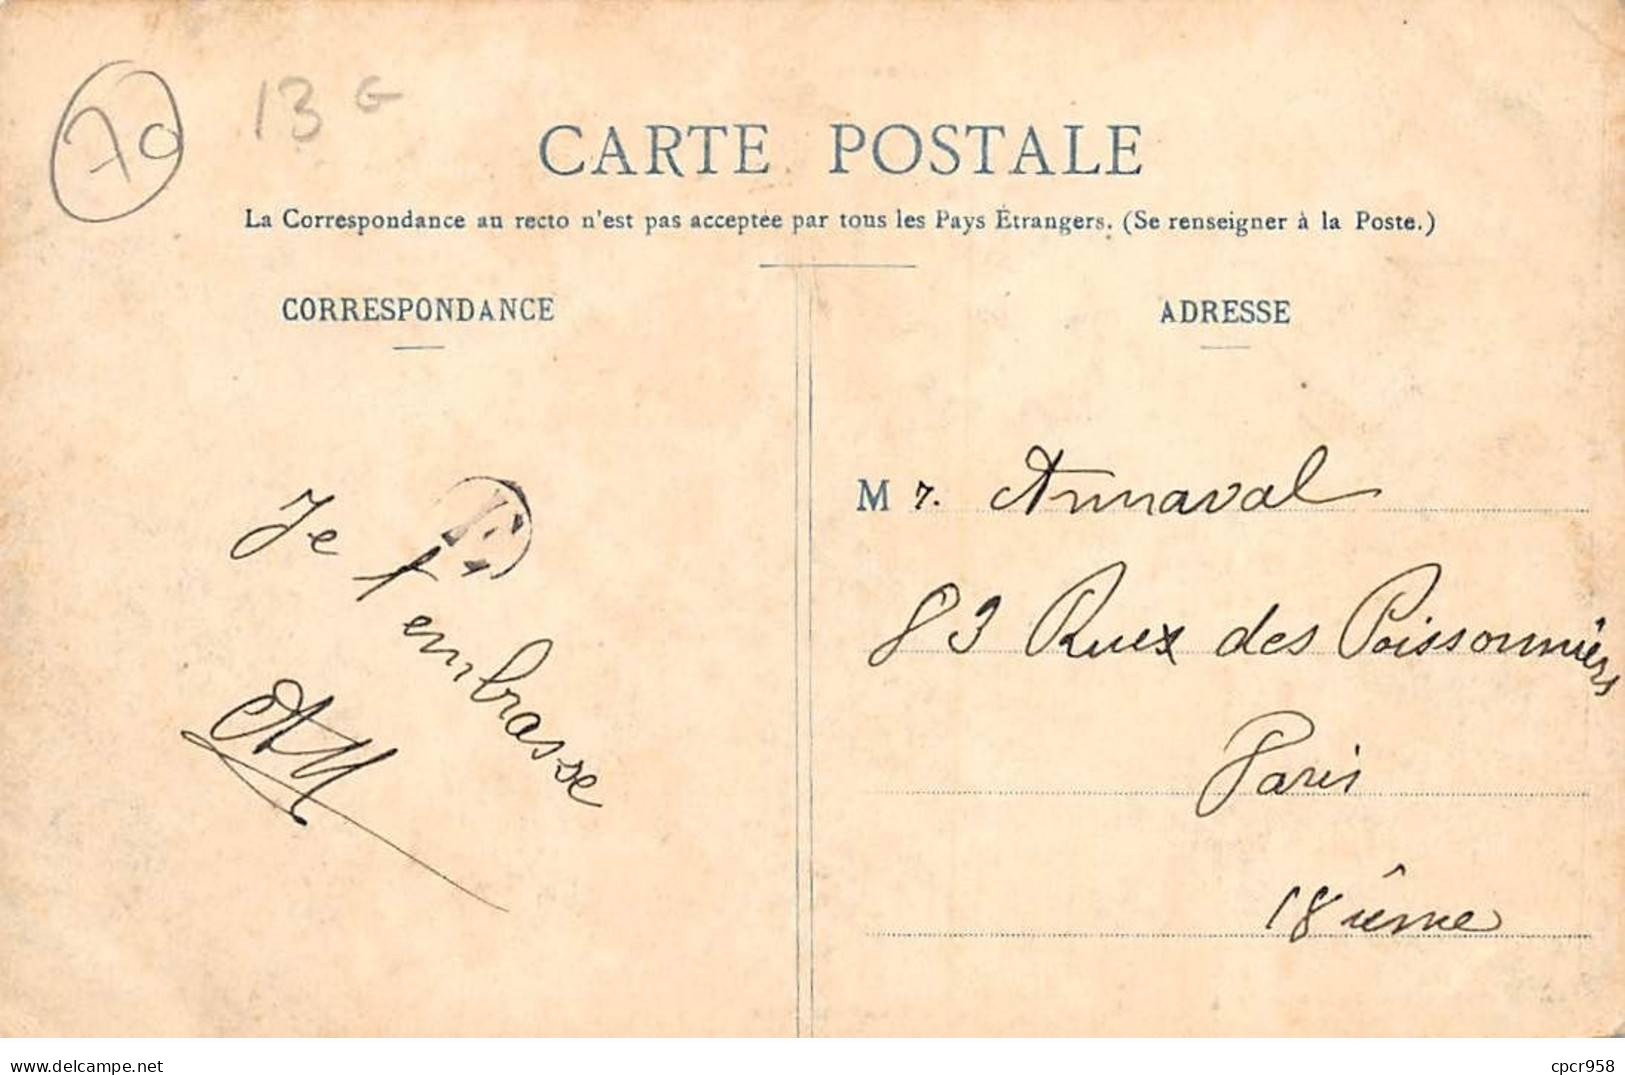 70
13 G
CARTE POSTALE
La Correspondance au recto n'est pas acceptée par tous les Pays Étrangers. (Se renseigner à la Poste.)
CORRESPONDANCE
Je t'embrasse
AM
ADRESSE
M r. Annaval
83 Rue des Poissonniers
Paris
18 ième
https://www.delcampe.net
cpcr958